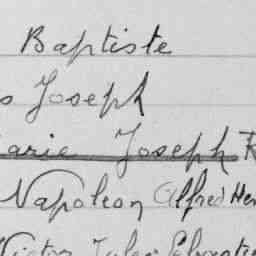 Baptiste
s Joseph
arie Joseph R
Napoléon Alfred Her
Victor Jules